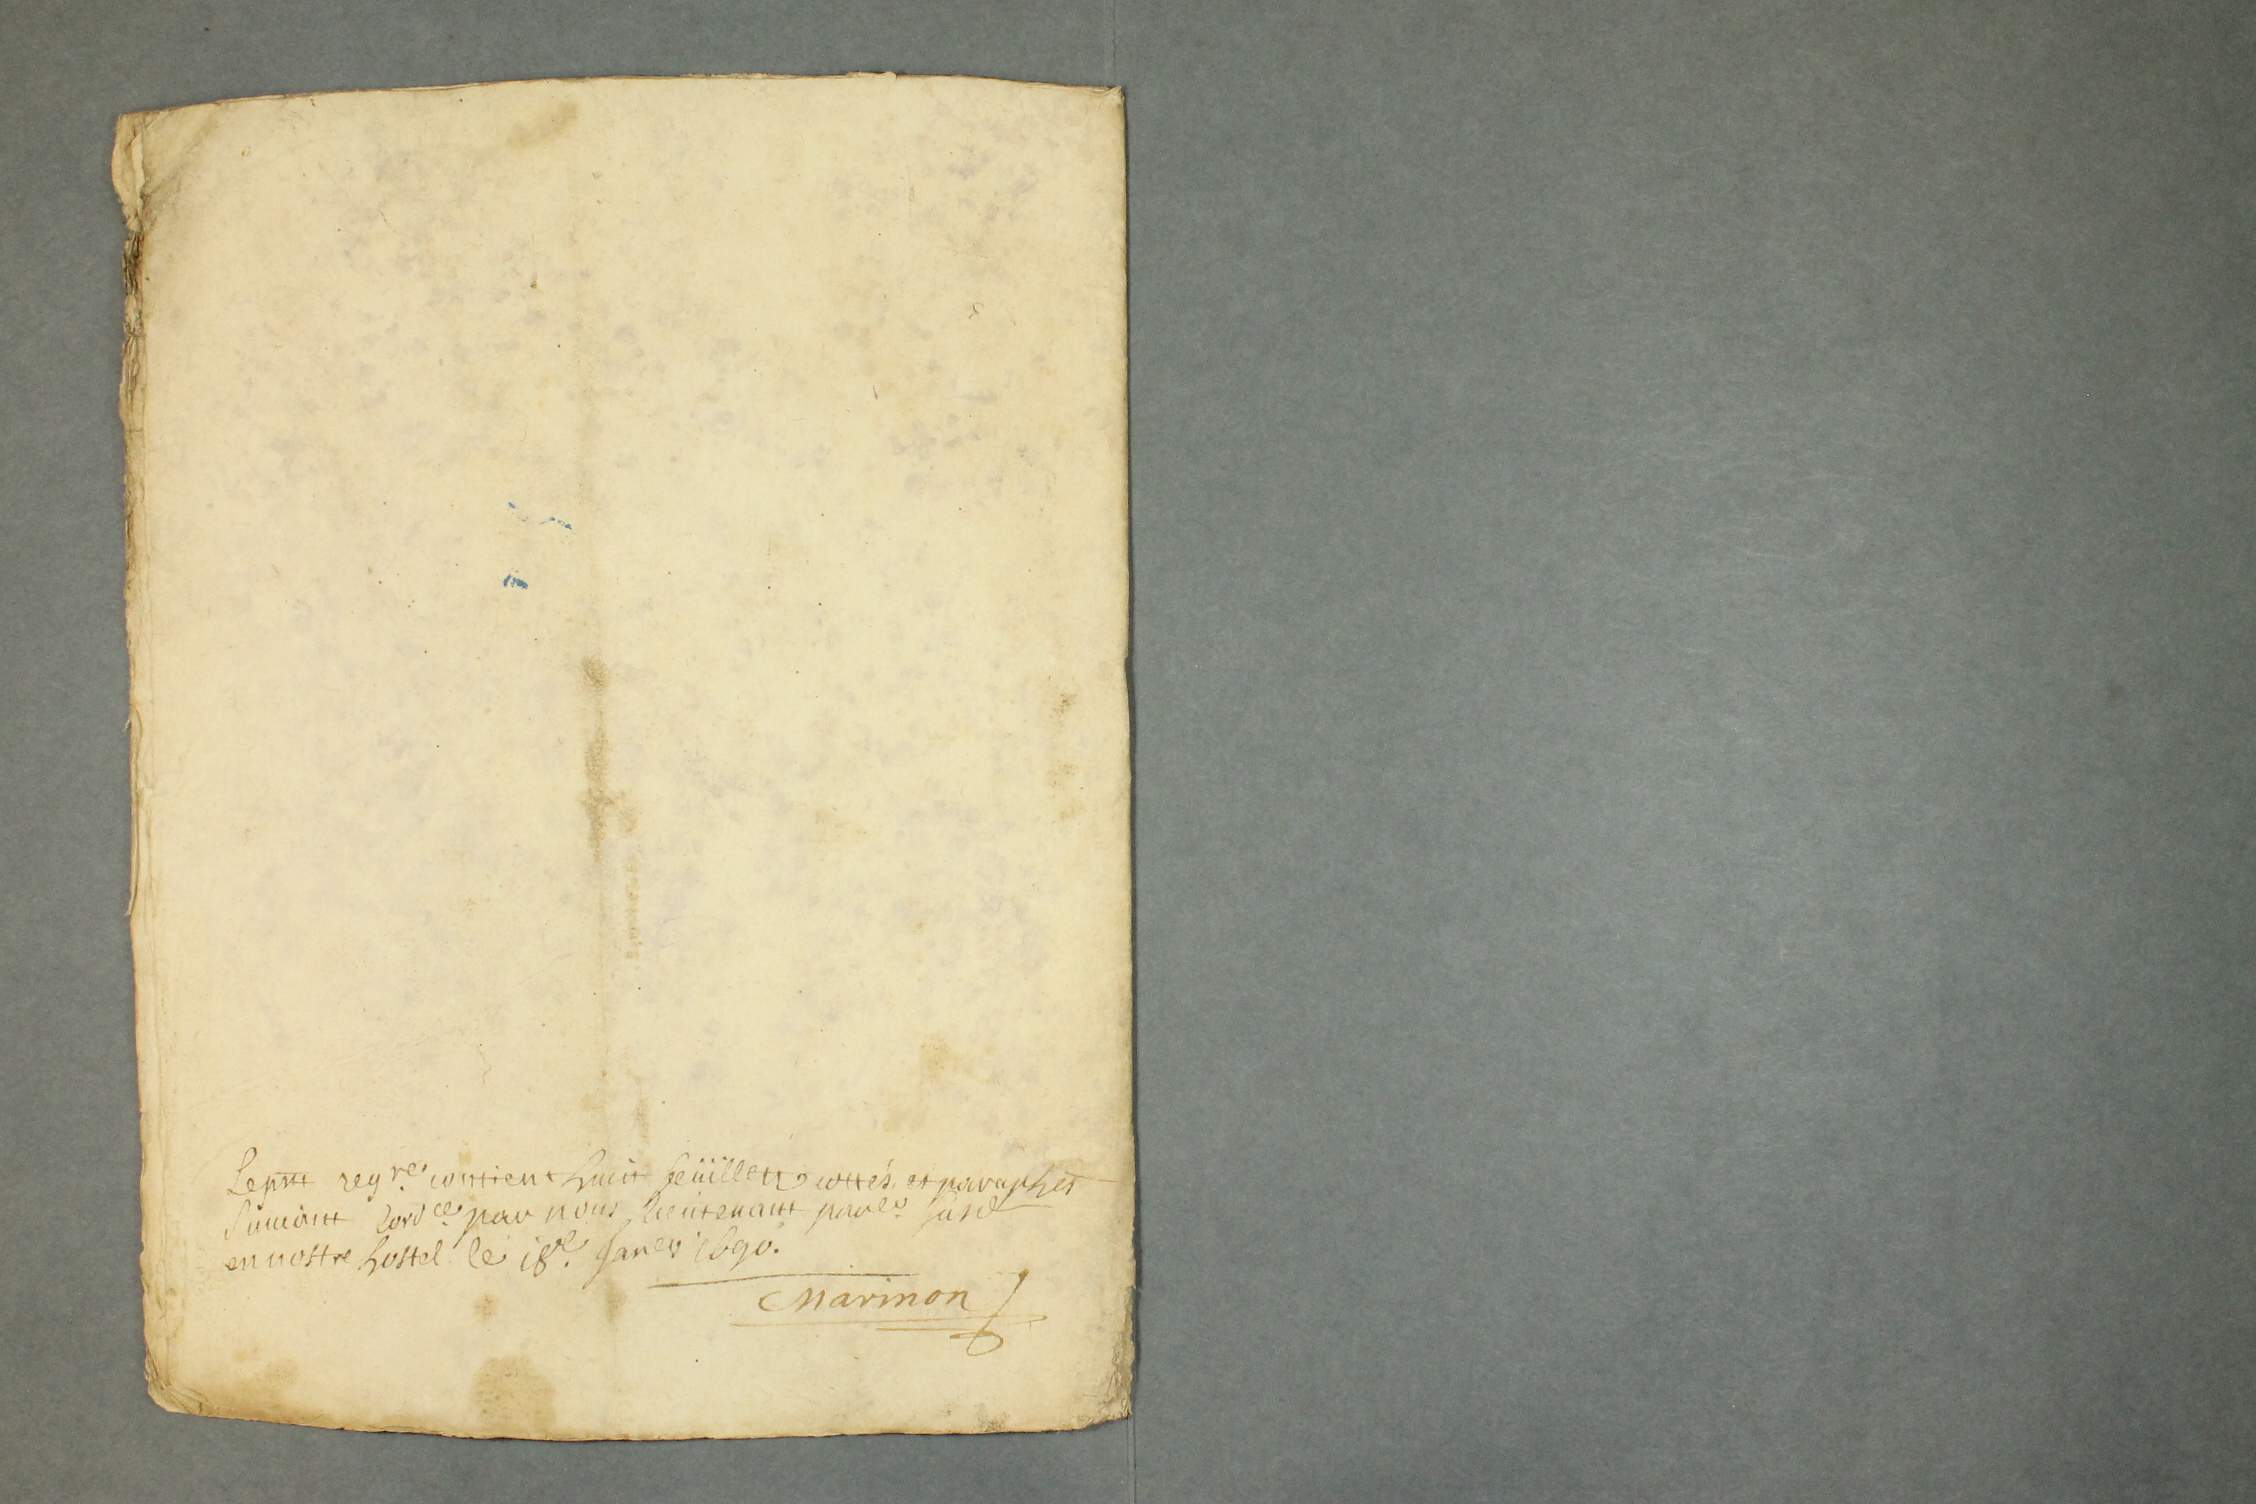 Le pnt regre contient huit feüillets cottés et paraphes
Suiuant lordce par nous lieutenant parler susd
en nostre hostel le 18e Janer 1690.
Marinon